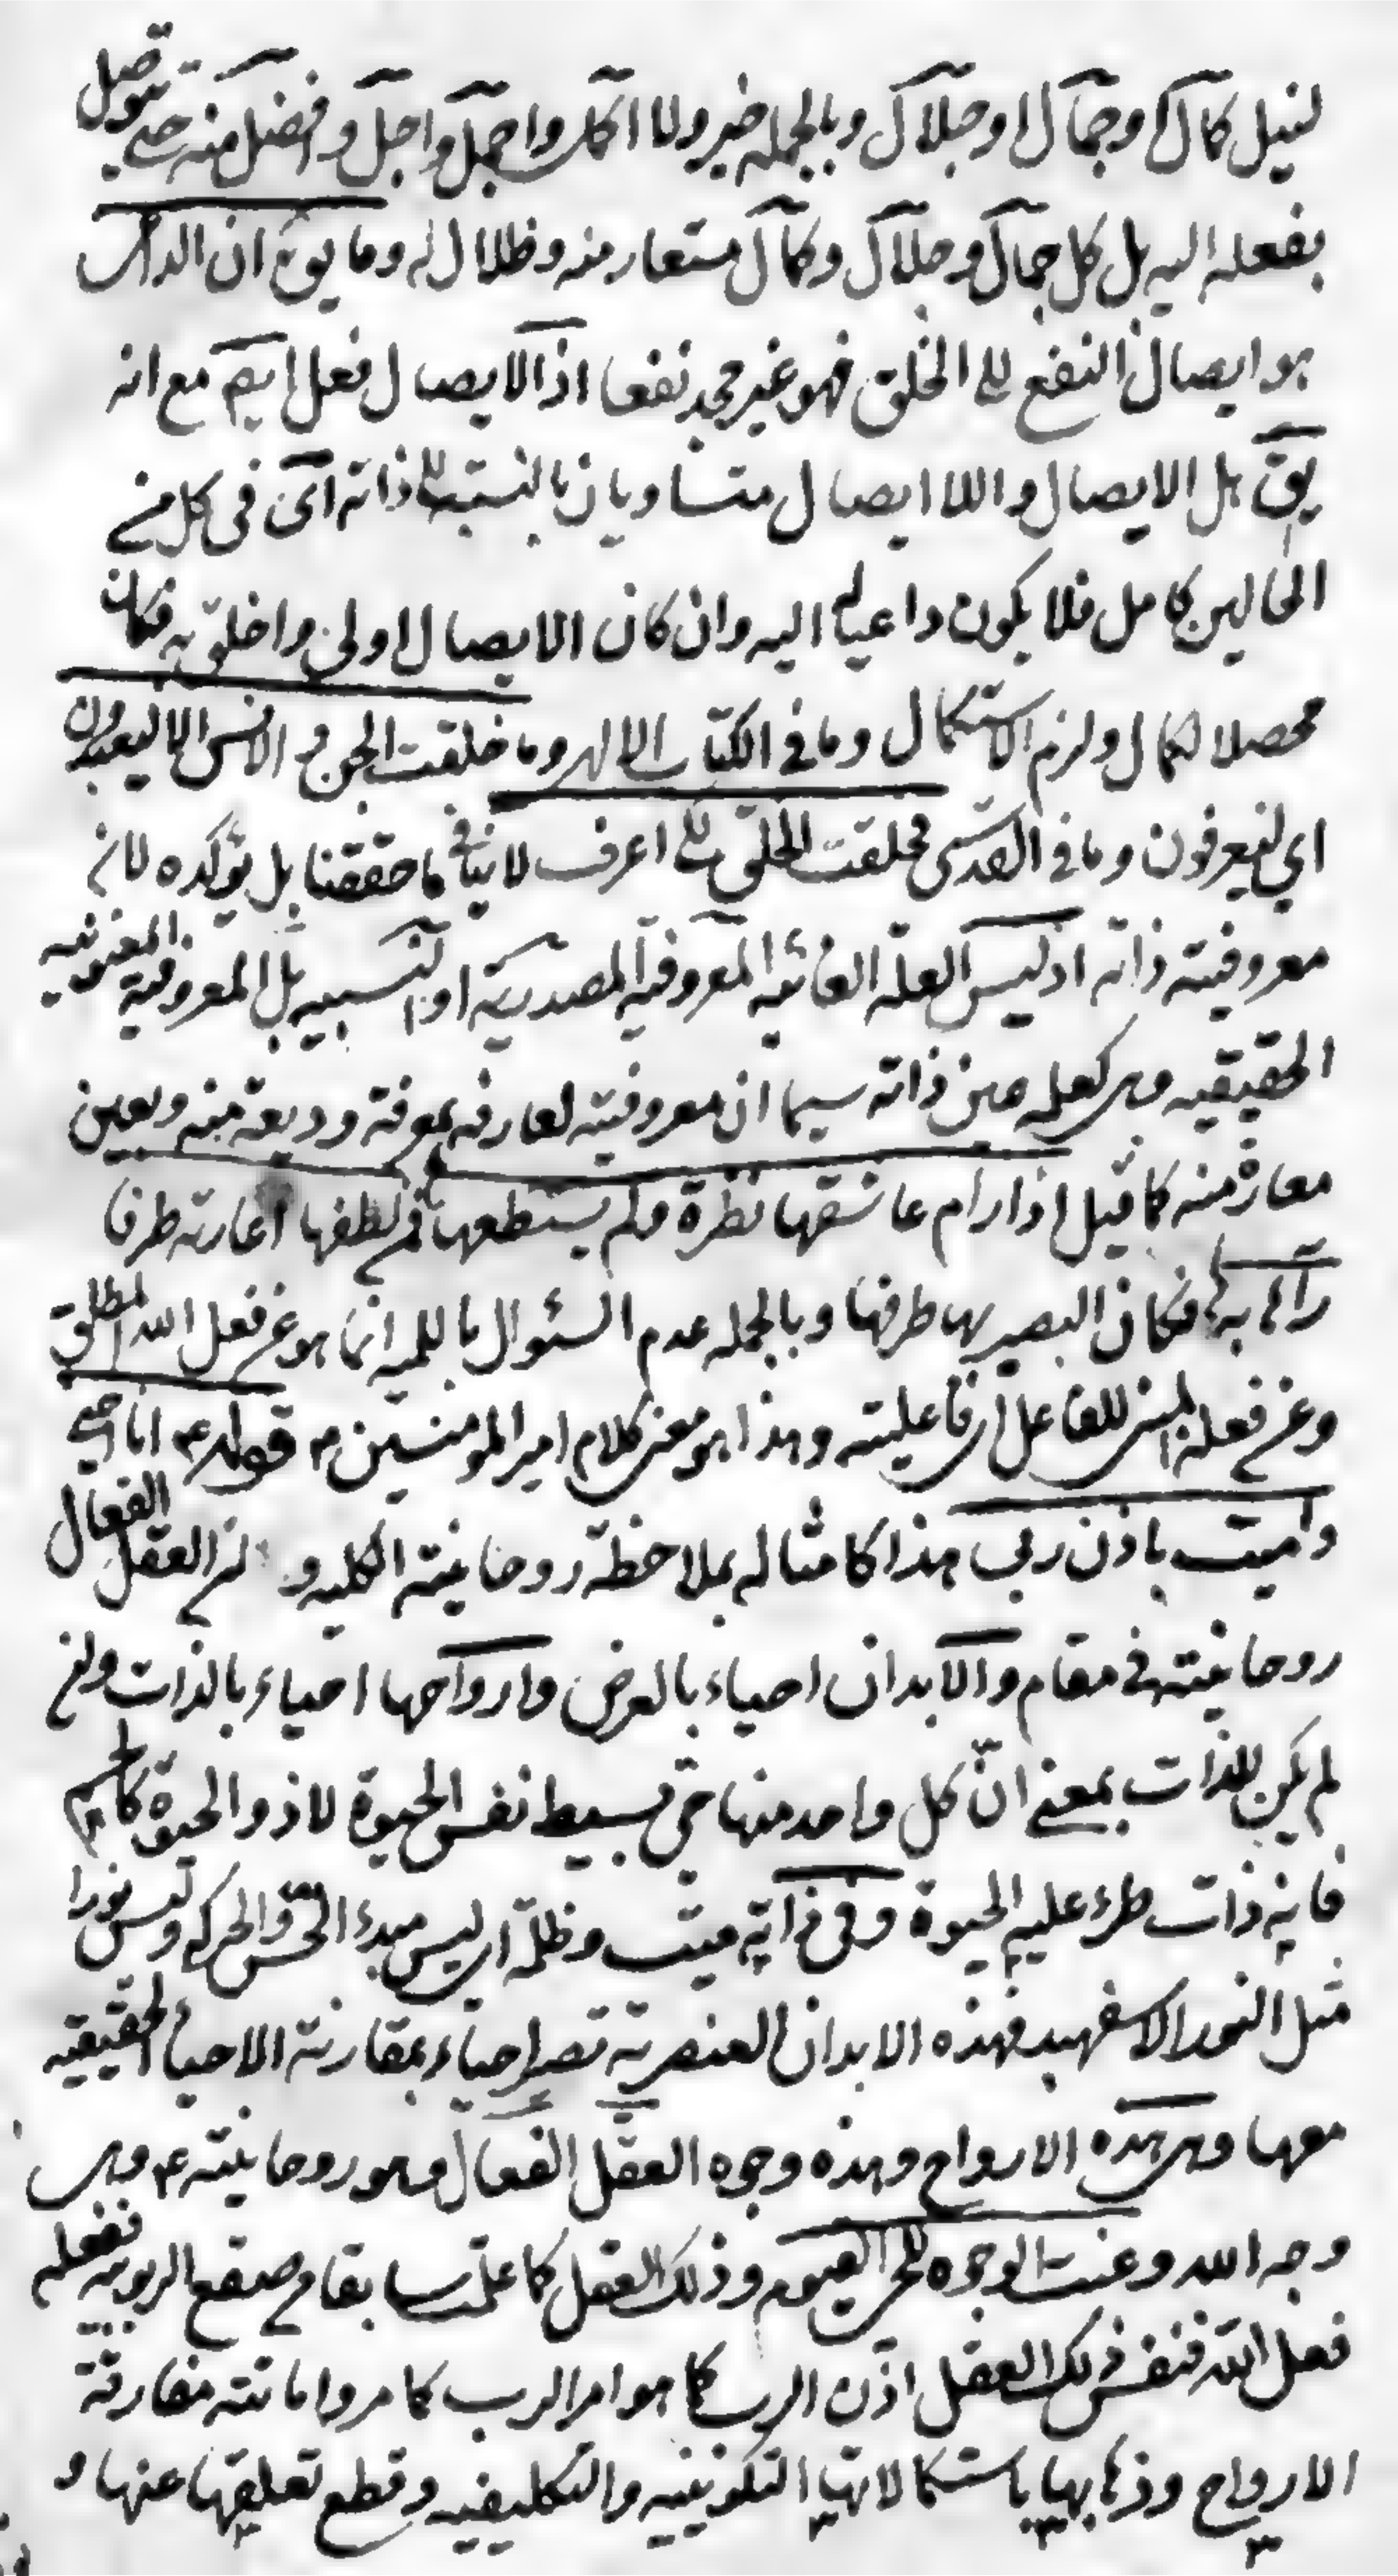 لنيل كمال او جمال او جلال وبالجمله خير ولا اكمل واجمل واجل وافضل منه حتى يتوصل
بفعله اليه بل كل جمال وجلال وكمال مستعار منه وظلال له وما يوق ان الداعى
هو ايصال النفع الى الخلق فهو غير مجد نفعا اذ الايصال فعل ايضم مع انه
يق هل الايصال واللا ايصال متساويان بالنسبة الى ذاته اى فى كل من
الحالين كامل فلا يكون داعيا له اليه وان كان الايصال اولى واخلق به فكان
محصلا لكمال ولزم الاستكمال وما فى الكتاب الالهى وما خلقت الجن و الانس الا ليعبدون
اي ليعرفون وما فى القدسى فخلقت الخلق لكى اعرف لا ينافى ما حققنا بل يؤكده لانه
معروفيته ذاته اذ ليس العلة الغائيه المعروفية المصدرية او النسبيه بل المعروفية المعنونيه
الحقيقيه وهى كعلمه عين ذاته سيما ان معروفيته لعارفه بمعرفة وديعة منه وبعين
معارة منه كما قيل اذا رام عاشقها نظرة ولم يستطعها فمن لطفها اعارته طرفا
رآها به فكان البصير بها طرفها وبالجمله عدم السئوال باللميه انما هو عن فعل الله المطلق
وعن فعله للفاعل فاعليته وهذا هو معنى كلام امير المومنين ع قوله ع انا احيى
واميت باذن ربى هذا كامثاله بملاحظة روحانيته الكليه و العقل الفعال
روحانيته فى مقام والابدان احياء بالعرض وارواحها احياء بالذات وان
لم يكن للذات بمعنى انّ كل واحد منها حى بسيط نفس الحيوة لا ذو الحيوة كالجسم
فانه ذات طرء عليه الحيوة وفى ذاته ميت وظلمة اى ليس مبدء الحس والحركه وليس نورا
مثل النور الاسفهبد فهذه الابدان العنصرية تصير احياء بمقارنة الاحياء الحقيقيه
معها وهى هذه الارواح وهذه وجوه العقل الفعال وهو روحانيته ع وهى
وجه الله وعنت الوجوه للحى القيوم وذلك العقل كما علمت سابقا من صقع الربوبيه ففعله
فعل الله فنفس ذلك العقل اذن الرب كما هو امر الرب كما مر واماتته مفارقة
الارواح وذهابها باستكمالاتها التكوينيه والتكليفيه وقطع تعلقها عنها و